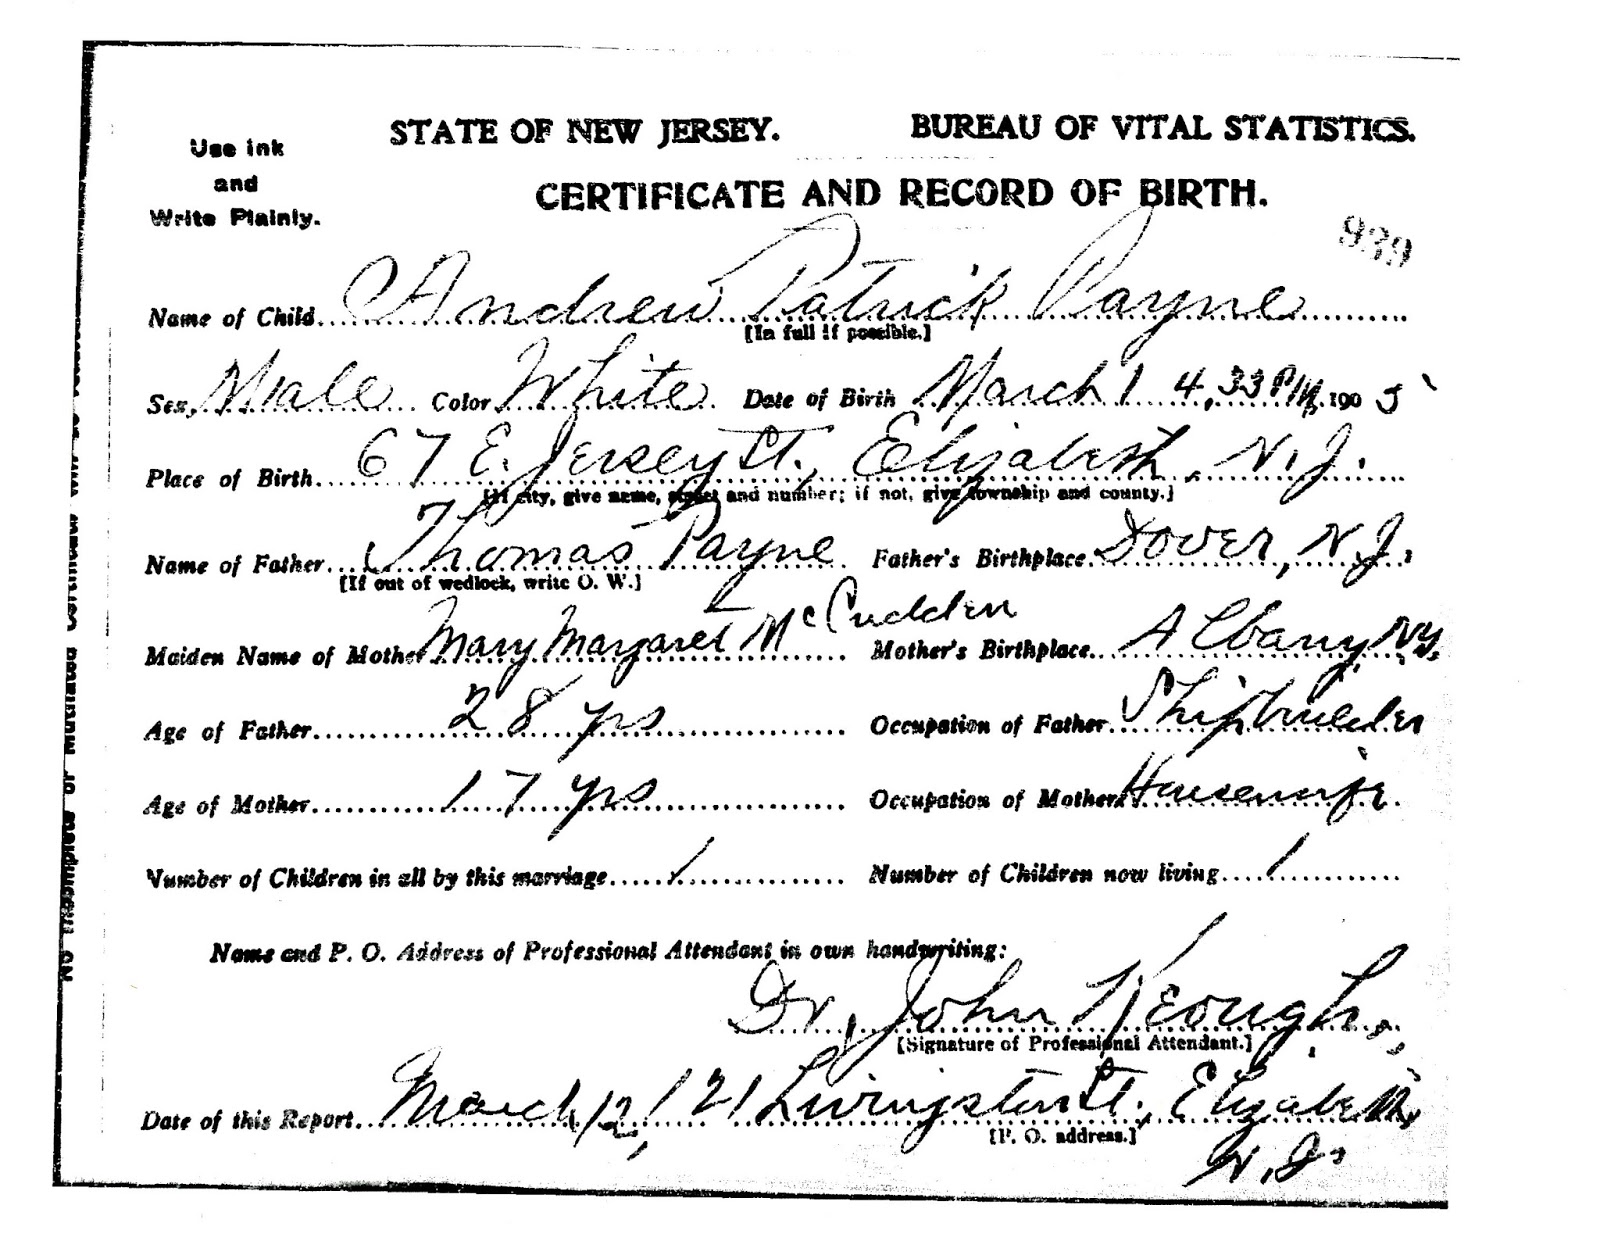 STATE OF NEW JERSEY. BUREAU OF VITAL STATISTICS.
Use ink
and
Write Plainly.
CERTIFICATE AND RECORD OF BIRTH.
939
Name of Child Andrew Patrick Payne
[In full if possible.]
Sex, Male Color White Date of Birth March 1 4,33 PM 1905
Place of Birth 67 E. Jersey St., Elizabeth, N.J.
[If city, give name, street and number; if not, give township and county.]
Name of Father Thomas Payne Father's Birthplace Dover, N.J.
[If out of wedlock, write O. W.]
Maiden Name of Mother Mary Margaret McCudden Mother's Birthplace Albany, N.Y.
Age of Father 28 yrs Occupation of Father Shipbuilder
Age of Mother 17 yrs Occupation of Mother Housewife
Number of Children in all by this marriage 1 Number of Children now living 1
Name and P. O. Address of Professional Attendant in own handwriting:
Dr. John Keough,
[Signature of Professional Attendant.]
Date of this Report March 12, 121 Livingston St., Elizabeth,
[P. O. address.]
N.J.
No Incomplete or Mutilated Certificate